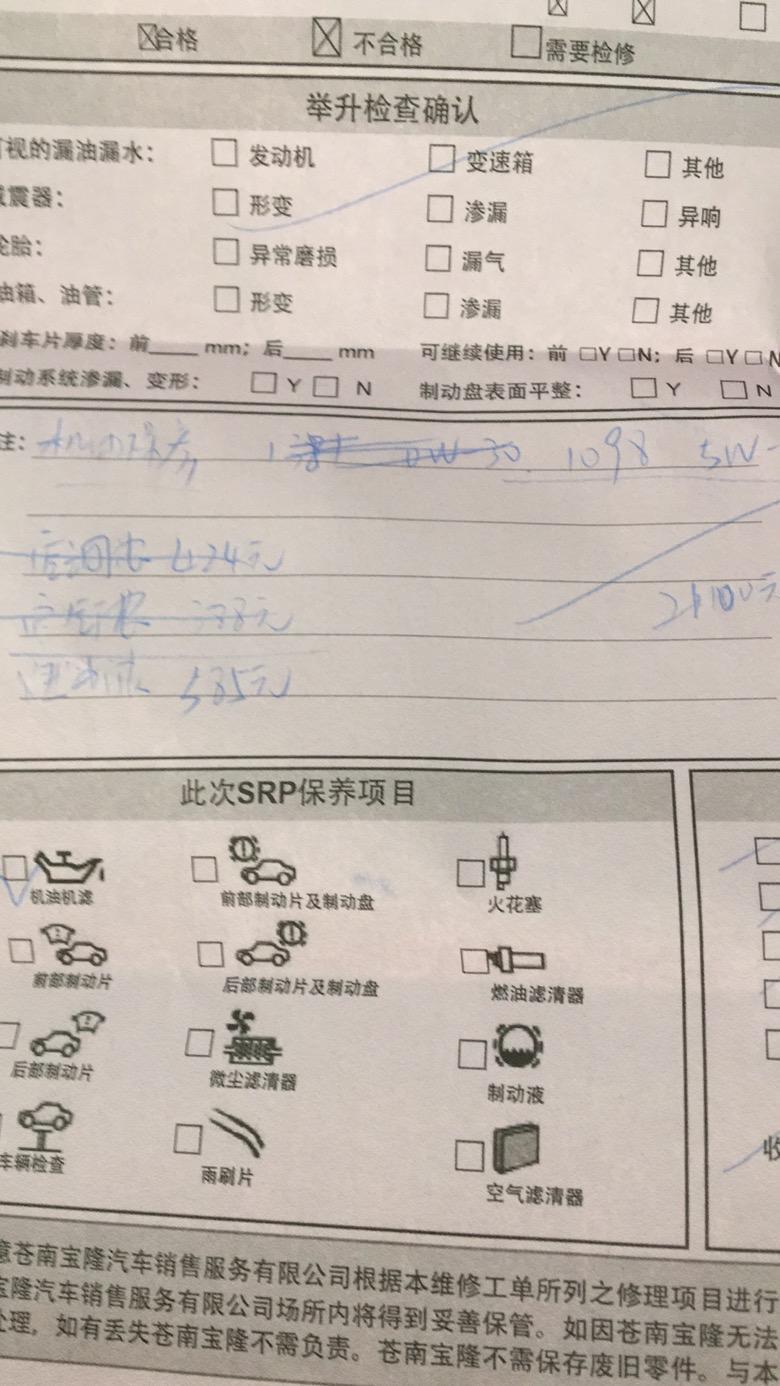 合格 不合格 需要检修
举升检查确认
视的漏油漏水： 发动机 变速箱 其他
震器： 形变 渗漏 异响
胎： 异常磨损 漏气 其他
油箱、油管： 形变 渗漏 其他
刹车片厚度：前____ mm；后____ mm 可继续使用：前 □Y □N；后 □Y □N
制动系统渗漏、变形： Y N 制动盘表面平整： Y N
注： 机油保养 1098 5W-
424元
元
535元
此次SRP保养项目
机油机滤 前部制动片及制动盘 火花塞
前部制动片 后部制动片及制动盘 燃油滤清器
后部制动片 微尘滤清器 制动液
车辆检查 雨刷片 空气滤清器
收
意苍南宝隆汽车销售服务有限公司根据本维修工单所列之修理项目进行
宝隆汽车销售服务有限公司场所内将得到妥善保管。如因苍南宝隆无法
处理，如有丢失苍南宝隆不需负责。苍南宝隆不需保存废旧零件。与本